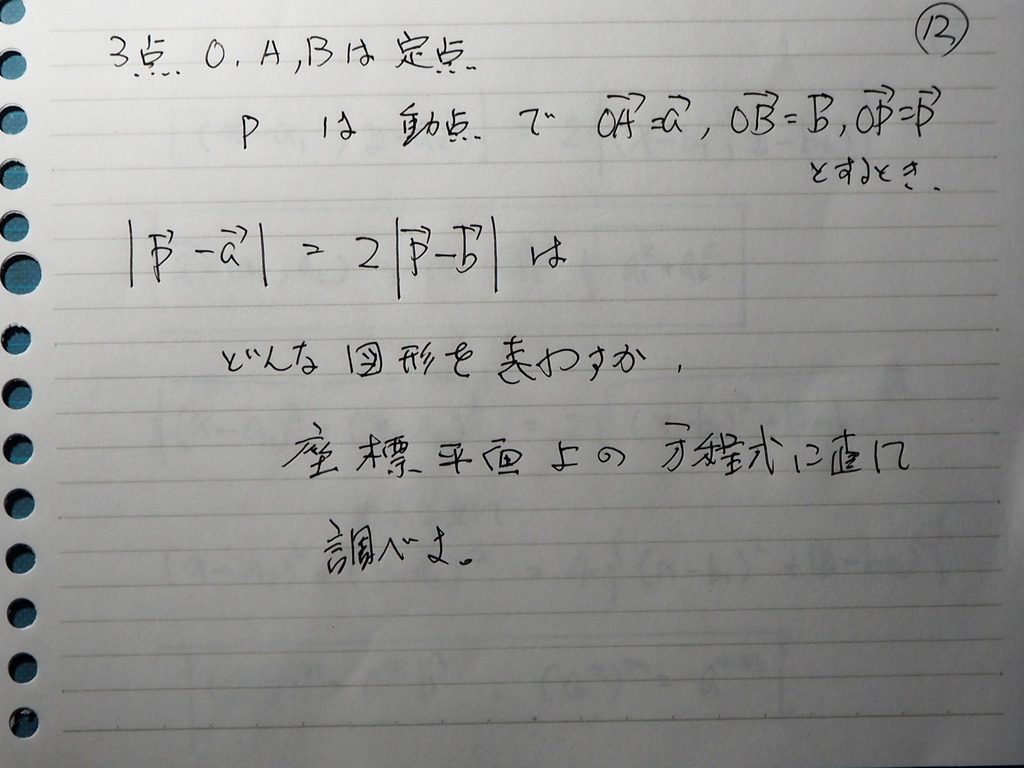 ⑫
3点 O, A, Bは 定点
P は 動点 で OA→=a→, OB→=b→, OP→=p→
とするとき.
|p→-a→| = 2|p→-b→| は
どんな 図形を 表わすか.
座標平面上の 方程式に直して
調べよ。